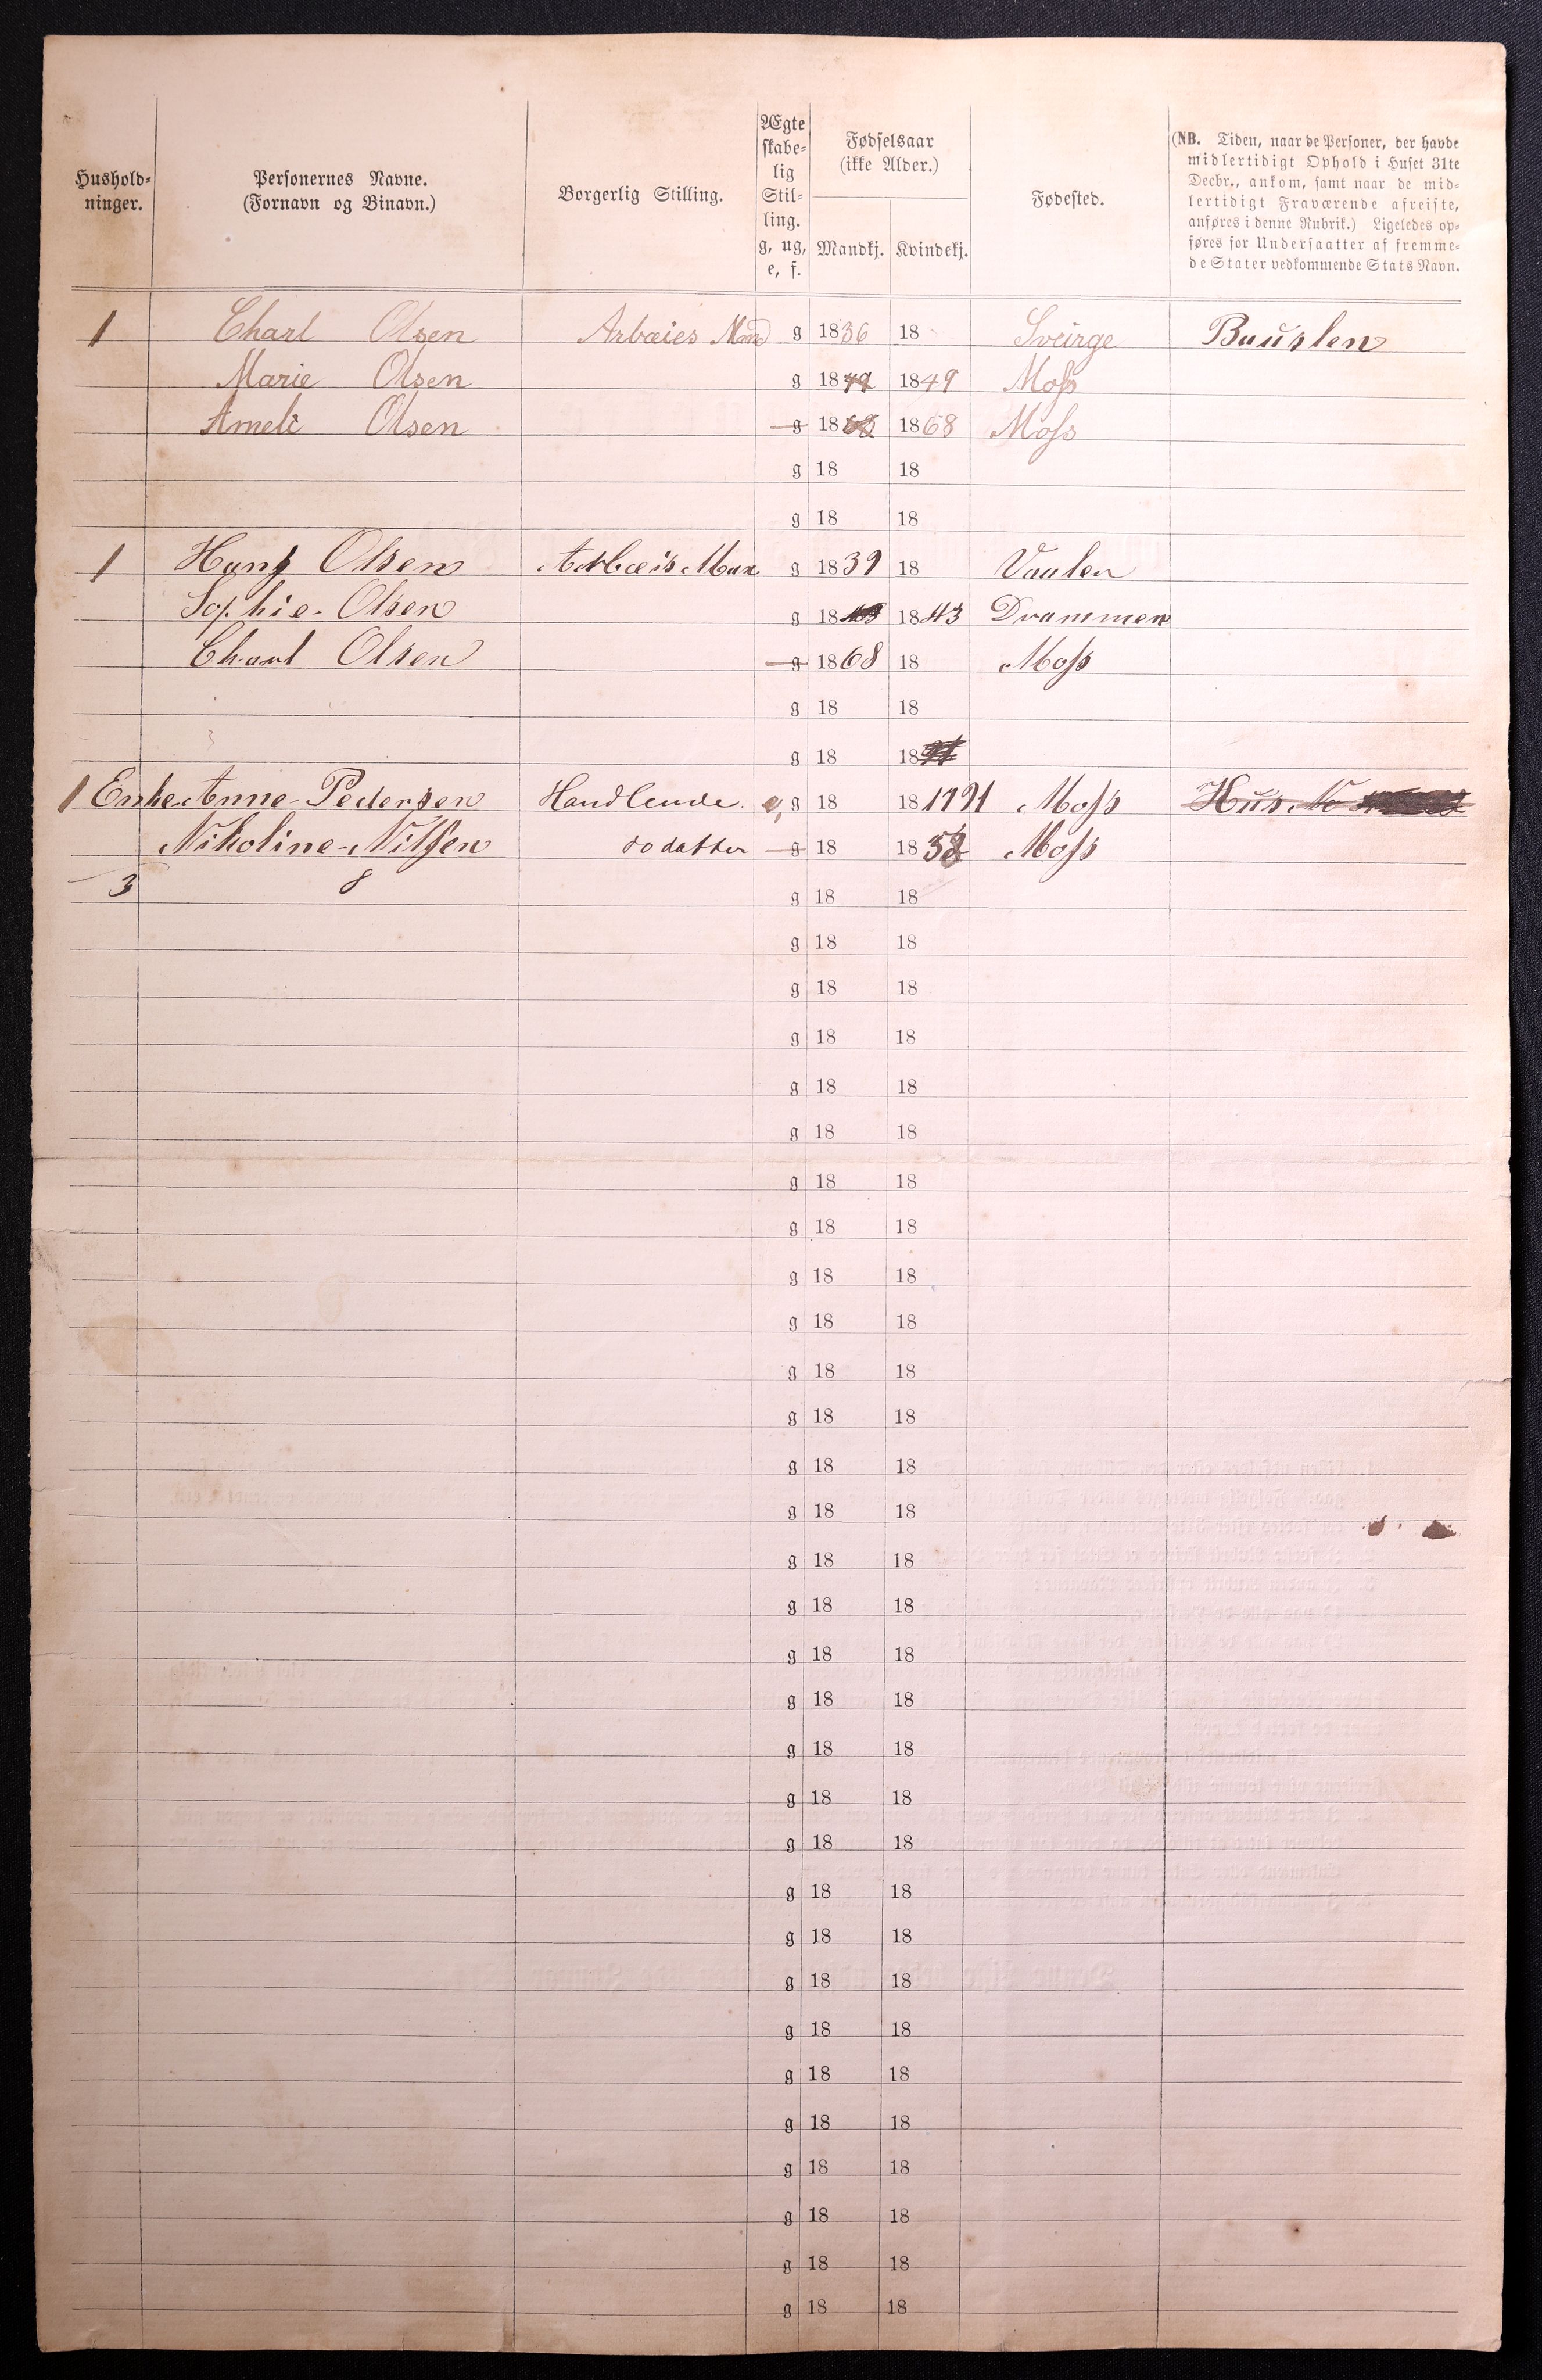 Hushold-
ninger.
Personernes Navne.
(Fornavn og Binavn.)
Borgerlig Stilling.
Ægte
skabe-
lig
Stil-
ling.
g, ug,
e, f.
Fødselsaar
(ikke Alder.)
Mandkj. Kvindekj.
Fødested.
(NB. Tiden, naar de Personer, der havde
midlertidigt Ophold i Huset 31te
Decbr., ankom, samt naar de mid-
lertidigt Fraværende afreiste,
anføres i denne Rubrik.) Ligeledes op-
føres for Undersaatter af fremme-
de Stater vedkommende Stats Navn.
1 Charl Olsen Arbæies Man g 1836 18 Sveirge
Marie Olsen g 1849 1849 Moss
Ameli Olsen g 1868 1868 Moss
g 18 18
g 18 18
1 Hans Olsen Arbæis Man g 1839 18 Vaaler
Sophie Olsen g 18 1843 Drammen
Charl Olsen g 1868 18 Moss
g 18 18
g 18 18
1 Enke Anne Pedersen Handlende. e, g 18 18 1791 Moss Hus No
Nikoline Nilsen do datter g 18 1858 Moss
3 8 g 18 18
g 18 18
g 18 18
g 18 18
g 18 18
g 18 18
g 18 18
g 18 18
g 18 18
g 18 18
g 18 18
g 18 18
g 18 18
g 18 18
g 18 18
g 18 18
g 18 18
g 18 18
g 18 18
g 18 18
g 18 18
g 18 18
g 18 18
g 18 18
g 18 18
g 18 18
g 18 18
g 18 18
g 18 18
g 18 18
g 18 18